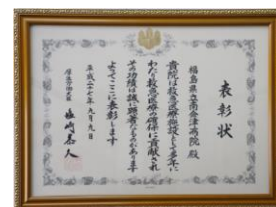 表彰状
福島県立南会津病院 殿
貴院は救急医療施設として多年に
わたり救急医療の確保に貢献され
その功績は誠に顕著なものがあります
よってここに表彰します
平成二十七年九月九日
厚生労働大臣
塩崎恭久